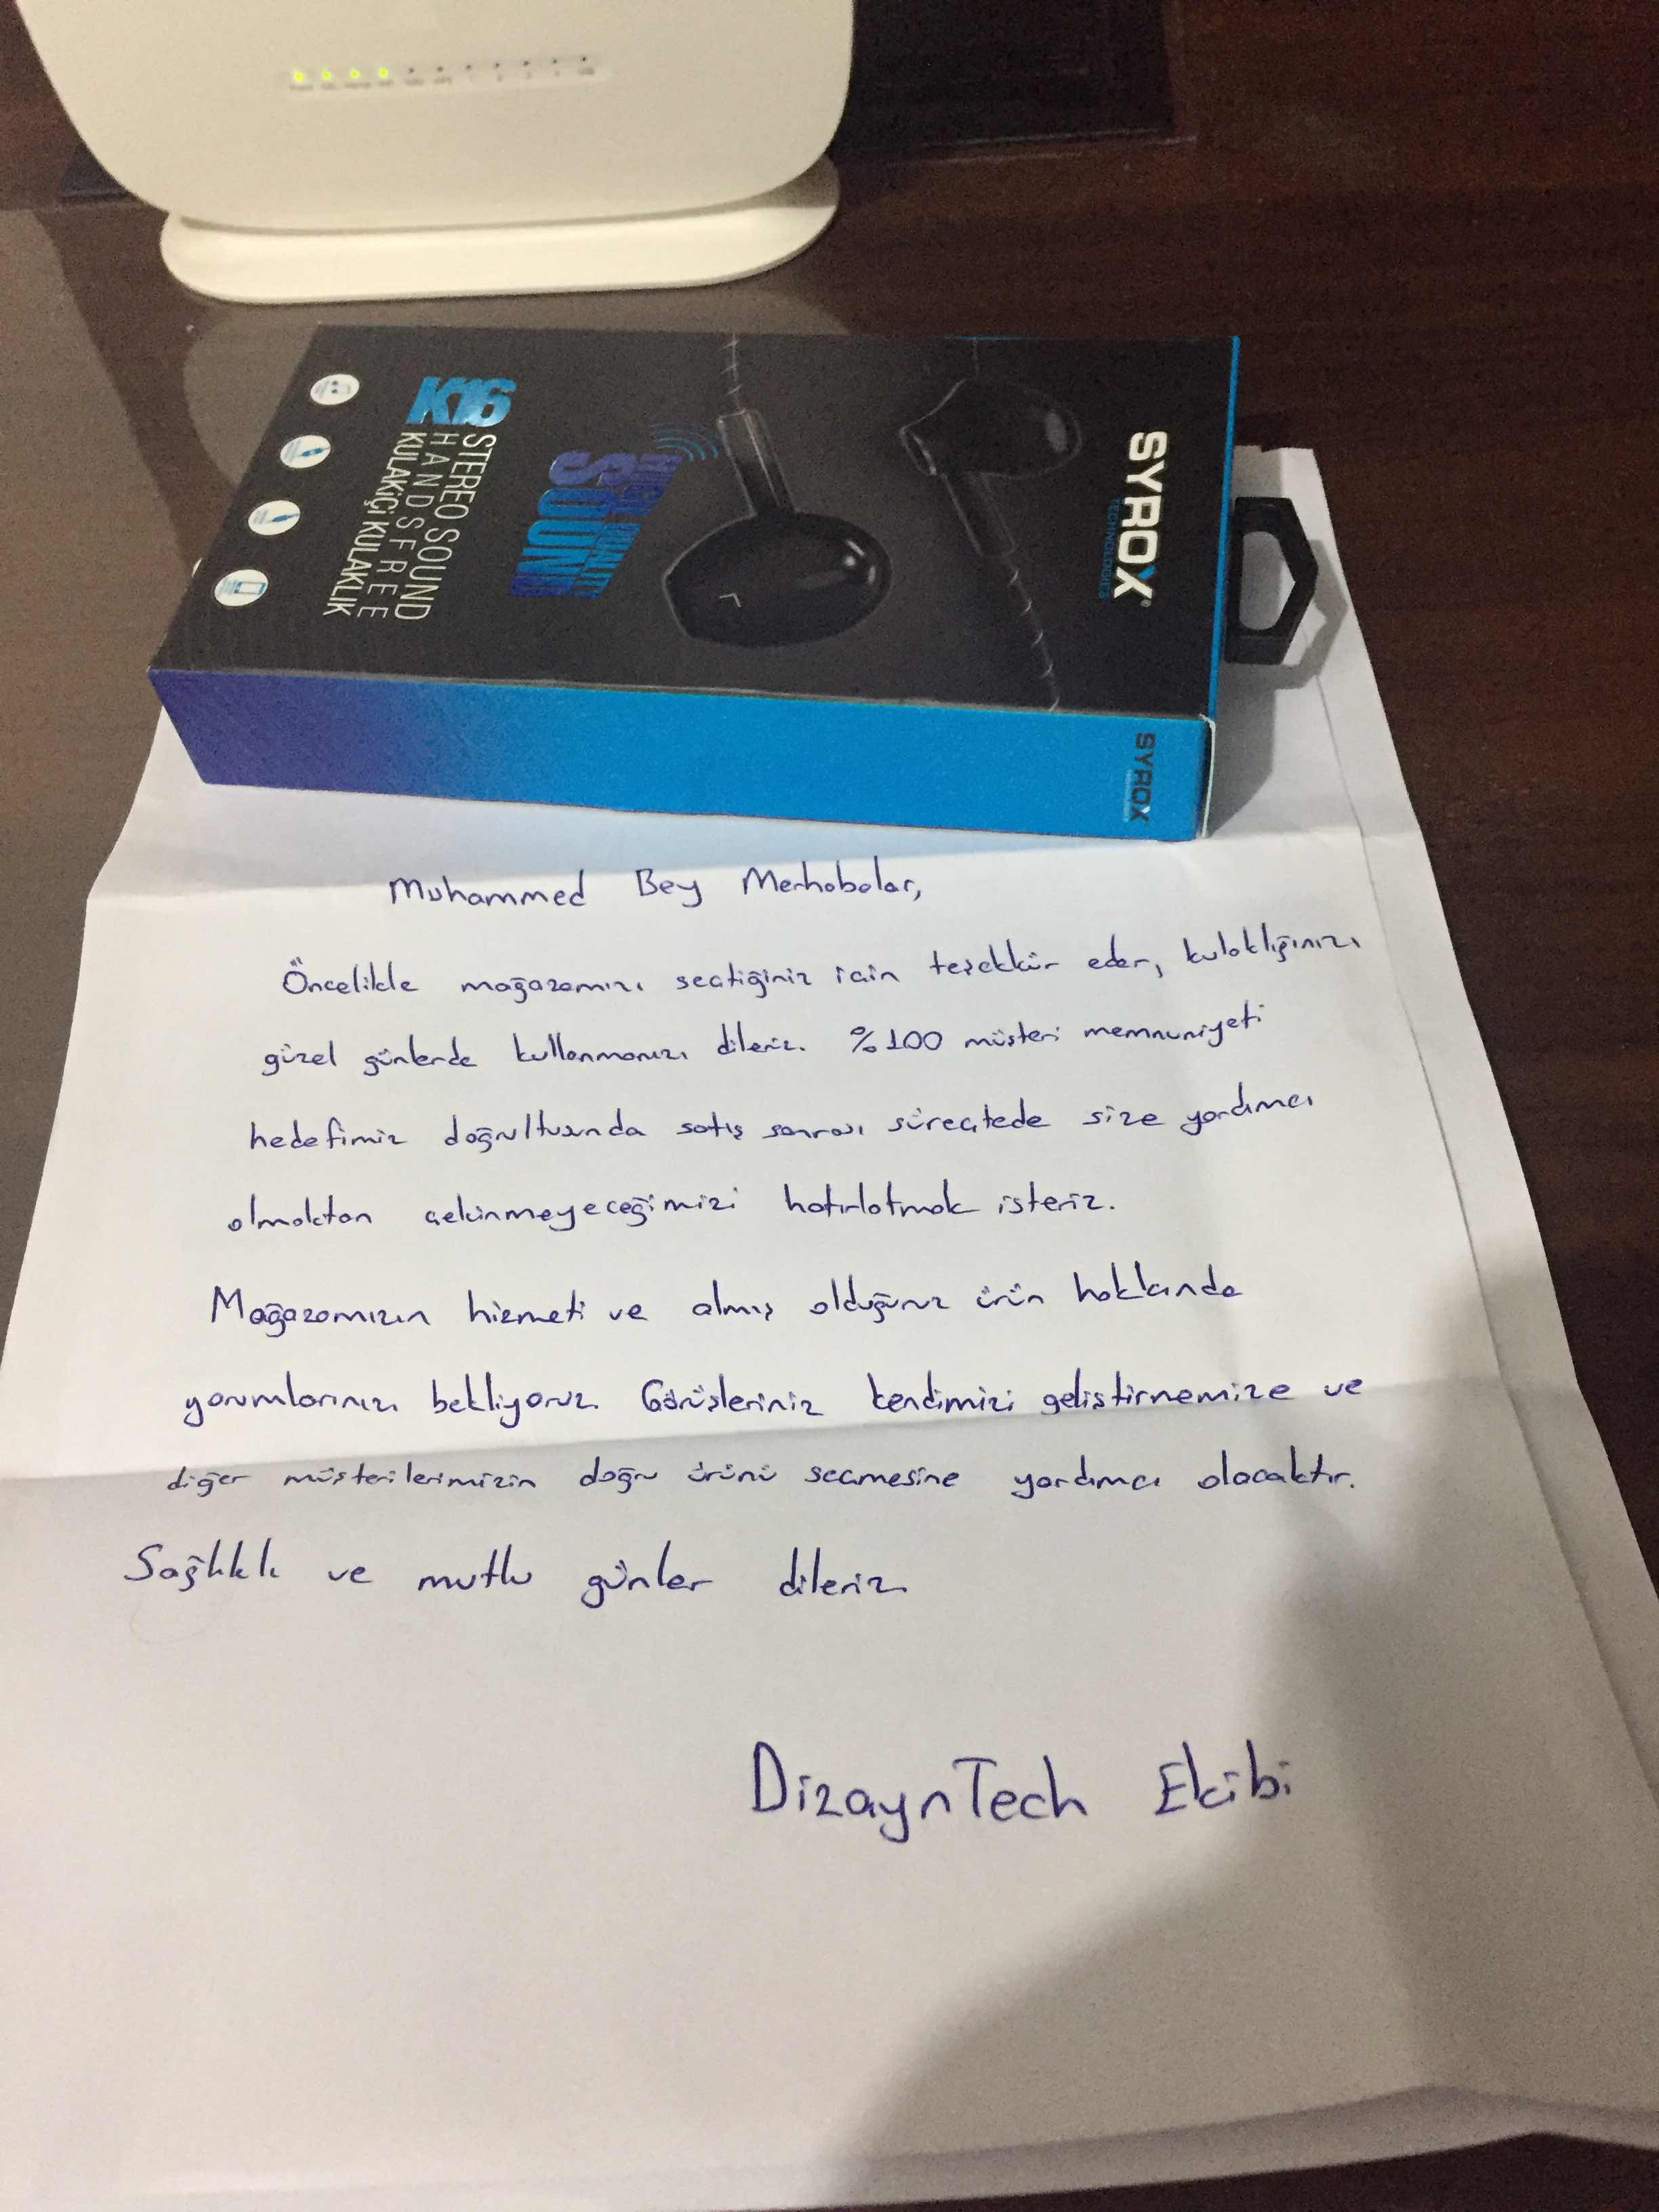 SYROX
TECHNOLOGIES
HIGH QUALITY
SOUND
K16
STEREO SOUND
HANDSFREE
KULAKİÇİ KULAKLIK
SYROX
Muhammed Bey Merhabalar,
Öncelikle mağazamızı seçtiğiniz için teşekkür eder, kulaklığınızı
güzel günlerde kullanmanızı dileriz. %100 müşteri memnuniyeti
hedefimiz doğrultusunda satış sonrası süreçtede size yardımcı
olmaktan çekinmeyeceğimizi hatırlatmak isteriz.
Mağazamızın hizmeti ve almış olduğunuz ürün hakkında
yorumlarınızı bekliyoruz. Görüşleriniz kendimizi geliştirmemize ve
diğer müşterilerimizin doğru ürünü seçmesine yardımcı olacaktır.
Sağlıklı ve mutlu günler dileriz.
DizaynTech Ekibi